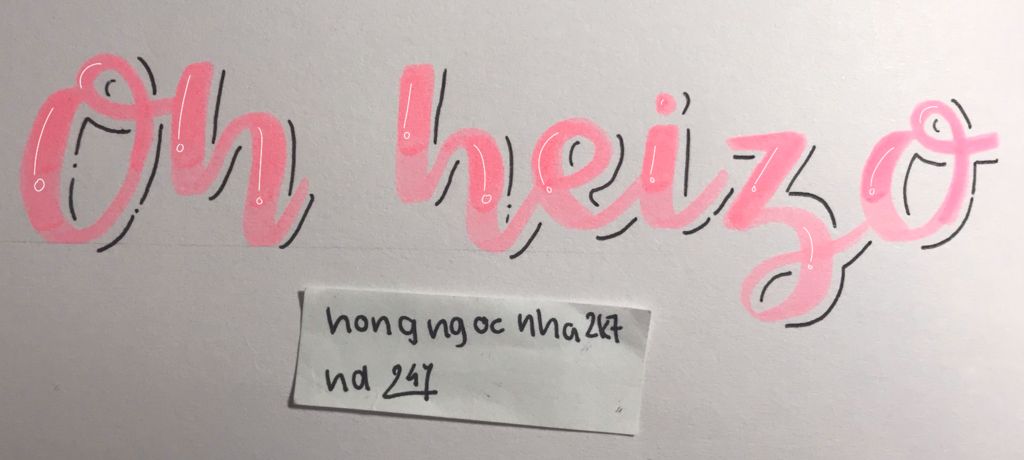 Oh heizo
hong ngoc nha 2k7
nd 247